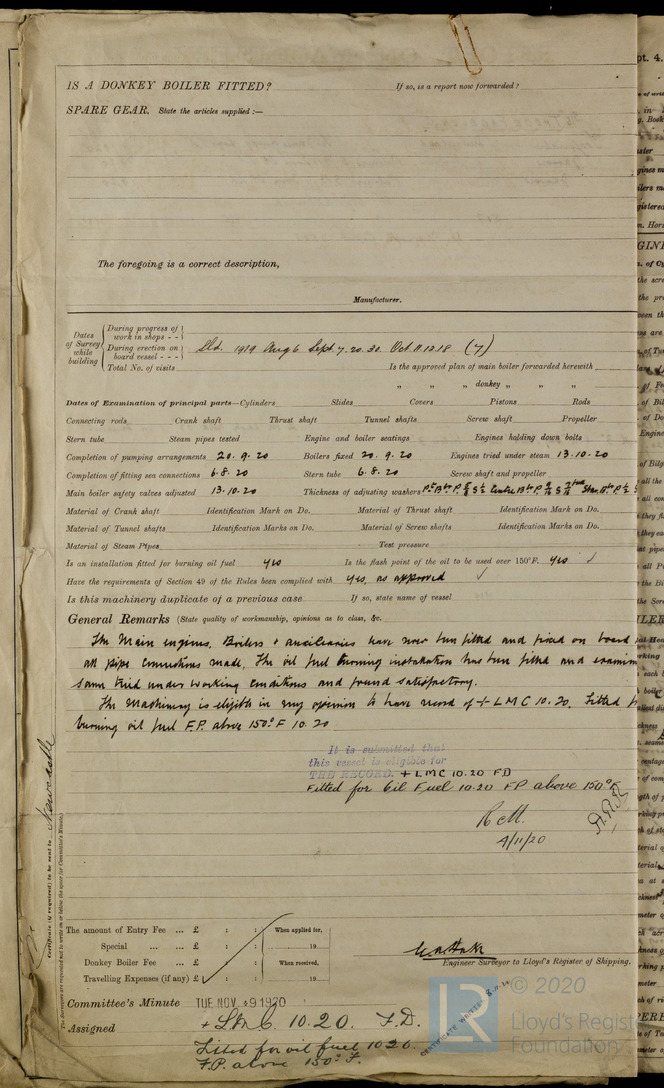 IS A DONKEY BOILER FITTED? If so, is a report now forwarded?
SPARE GEAR. State the articles supplied :—
The foregoing is a correct description,
Manufacturer.
Dates of Survey while building
During progress of work in shops - -
During erection on board vessel - - -
Total No. of visits
Sld. 1919 Aug 6 Sept. 7. 20. 30. Oct. 11. 12. 18 (7)
Is the approved plan of main boiler forwarded herewith
„ „ donkey „ „
Dates of Examination of principal parts—Cylinders Slides Covers Pistons Rods
Connecting rods Crank shaft Thrust shaft Tunnel shafts Screw shaft Propeller
Stern tube Steam pipes tested Engine and boiler seatings Engines holding down bolts
Completion of pumping arrangements 20.9.20 Boilers fixed 20.9.20 Engines tried under steam 13.10.20
Completion of fitting sea connections 6.8.20 Stern tube 6.8.20 Screw shaft and propeller
Main boiler safety valves adjusted 13.10.20 Thickness of adjusting washers
Material of Crank shaft Identification Mark on Do. Material of Thrust shaft Identification Mark on Do.
Material of Tunnel shafts Identification Marks on Do. Material of Screw shafts Identification Marks on Do.
Material of Steam Pipes Test pressure
Is an installation fitted for burning oil fuel yes Is the flash point of the oil to be used over 150°F. yes ✓
Have the requirements of Section 49 of the Rules been complied with yes, as approved ✓
Is this machinery duplicate of a previous case If so, state name of vessel
General Remarks (State quality of workmanship, opinions as to class, &c.
The Main engines, Boilers & auxiliaries have now been fitted and fixed on board
all pipe connections made. The oil fuel burning installation has been fitted and examin
same tried under working conditions and found satisfactory.
The Machinery is eligible in my opinion to have record of + LMC 10.20. Fitted f
burning oil fuel F.P. above 150°F 10.20
It is submitted that
this vessel is eligible for
THE RECORD. + LMC 10.20 FD
Fitted for Oil Fuel 10.20 FP above 150°F
4/11/20
Certificate (if required) to be sent to Newcastle
The Surveyors are requested not to write on or below the space for Committee's Minute.
The amount of Entry Fee ... £ : : When applied for,
Special ... ... £ : : 19
Donkey Boiler Fee ... £ : : When received,
Travelling Expenses (if any) £ : : 19
Engineer Surveyor to Lloyd's Register of Shipping.
Committee's Minute TUE. NOV. 9 1920
Assigned + LMC 10.20. F.D.
Fitted for oil fuel 10.20
F.P. above 150°F.
CERTIFICATE WRITTEN
LR © 2020
Lloyd's Regist
Foundation